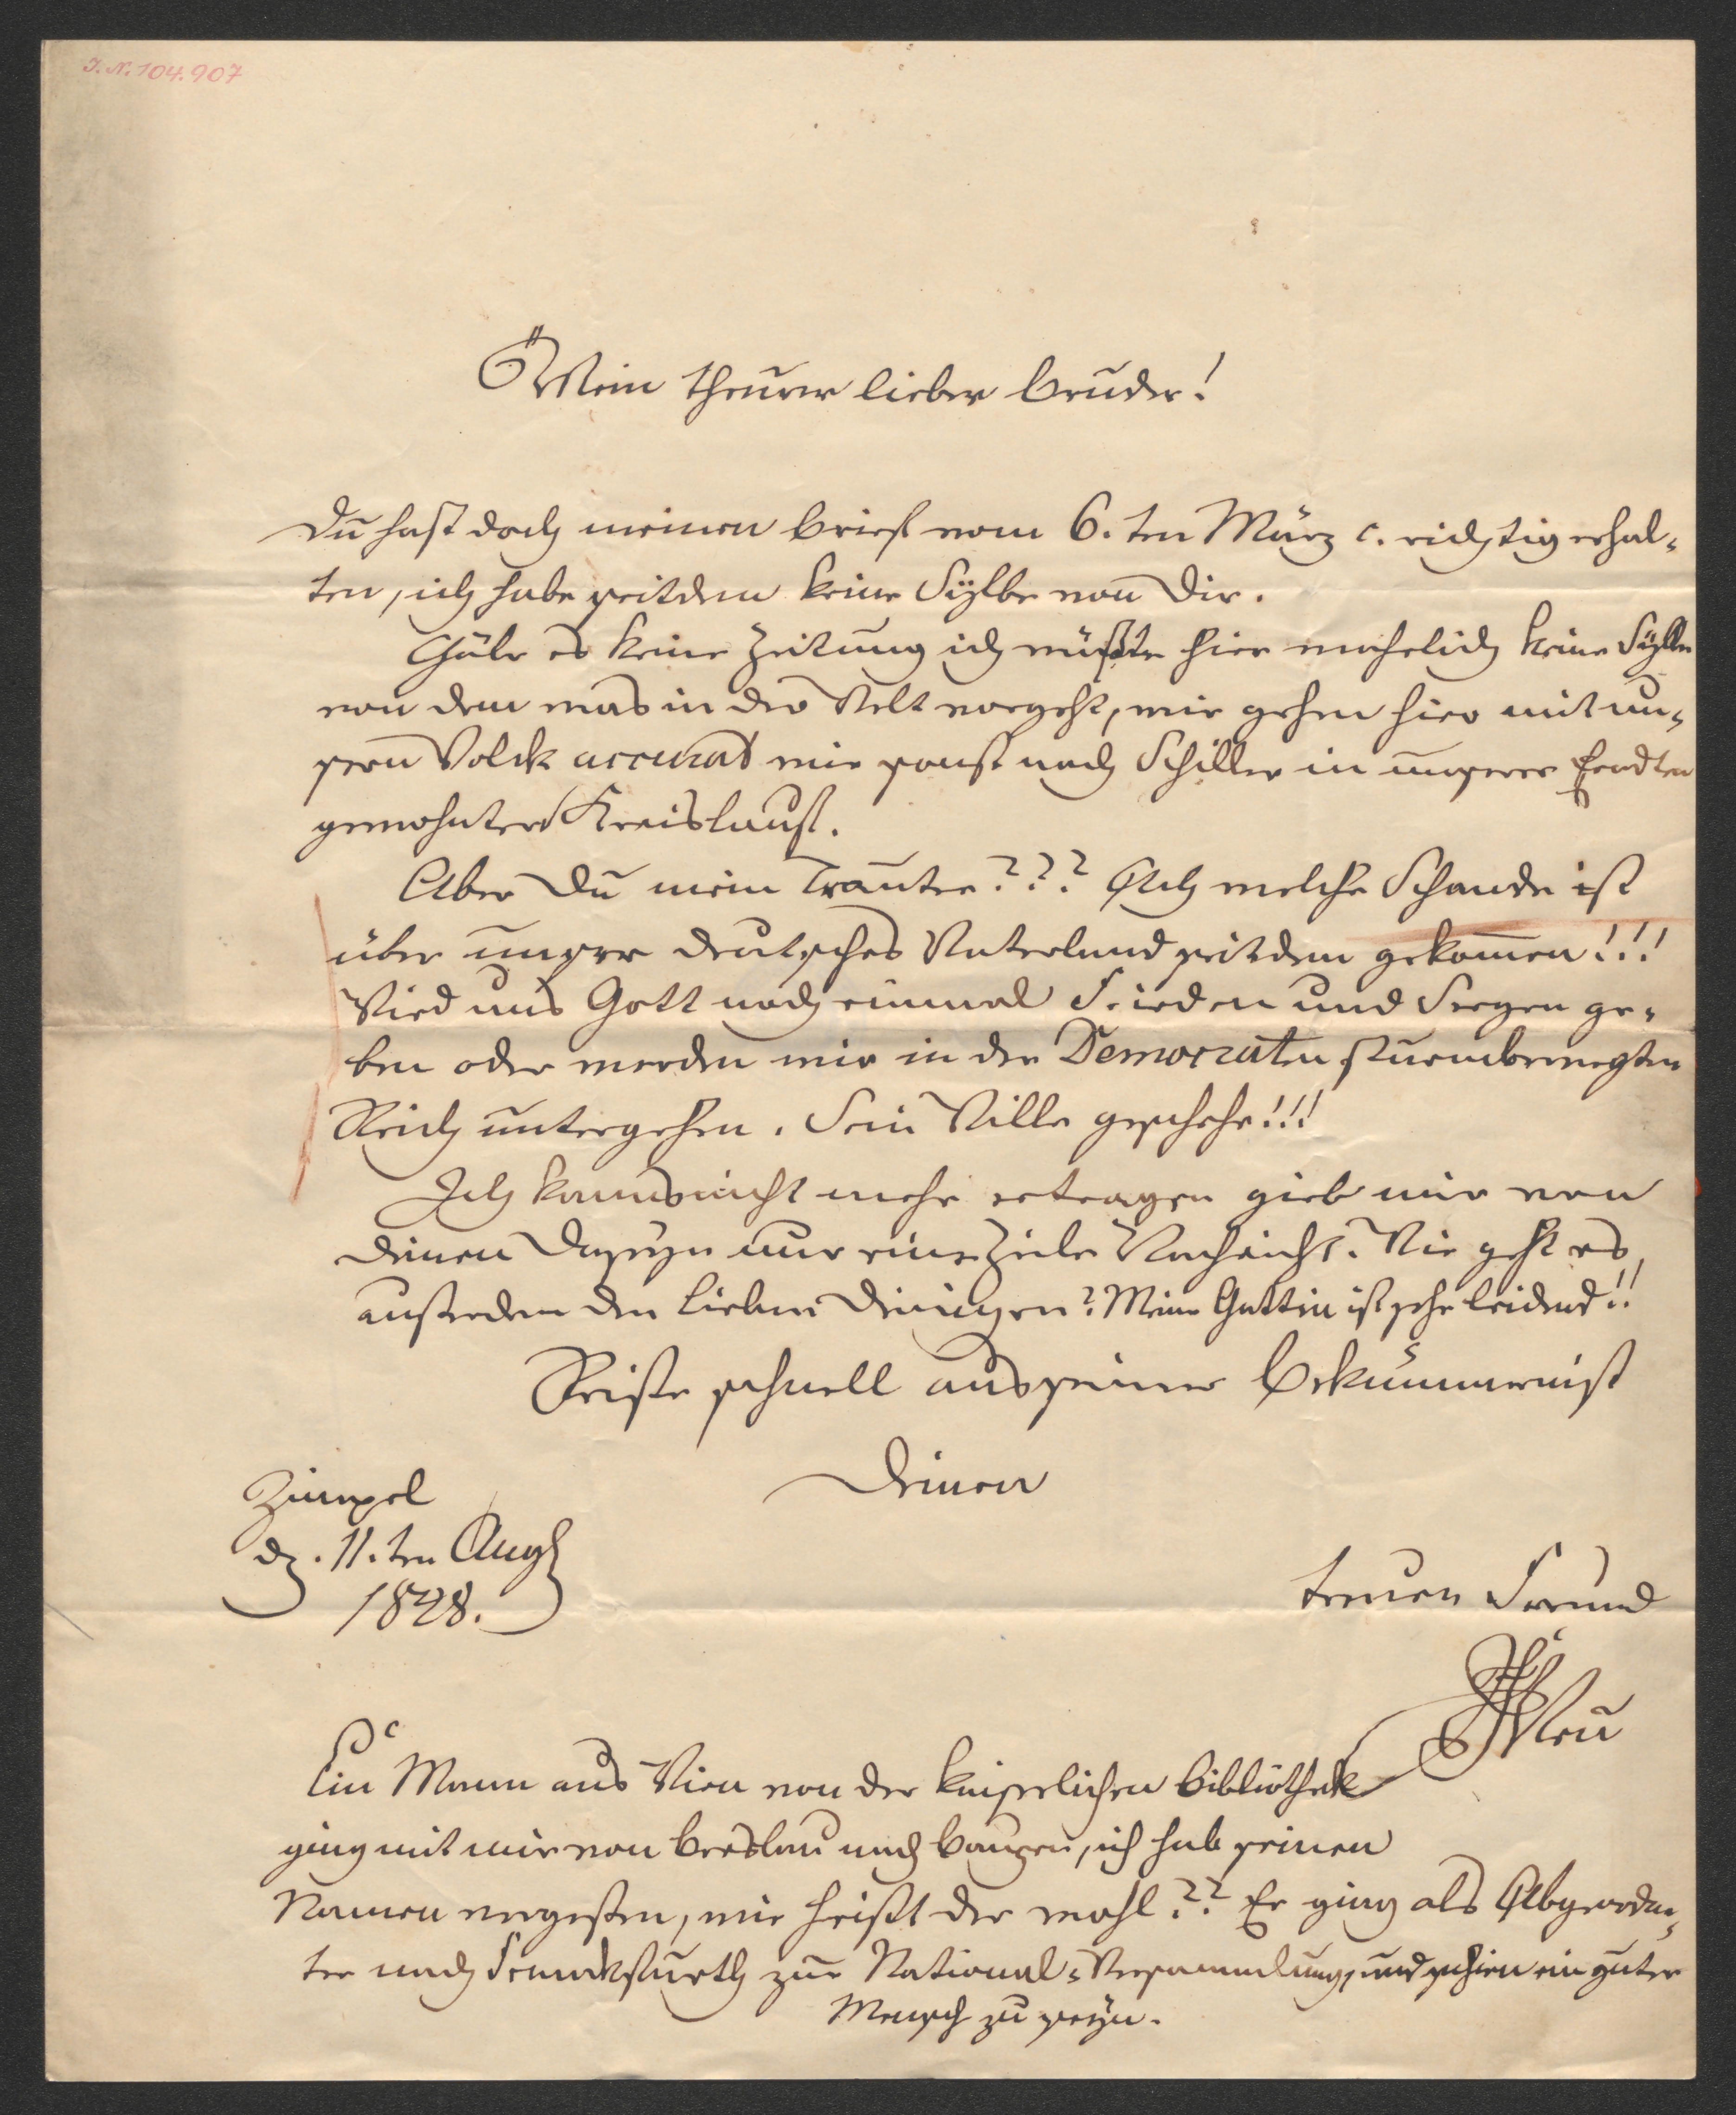 I. N. 104.907
Mein theurer lieber Bruder!
Du hast doch meinen Brief vom 6. ten März c. richtig erhal-
ten, ich habe seitdem keine Sylbe von Dir.
Gäbe es keine Zeitung ich wüßte hier wahrlich keine Sylbe
von dem was in der Welt vorgeht, wir gehen hier mit un-
sern Volck accurat wie sonst nach Schiller in unserer Erndten
gewohnten Kreislauf.
Aber Du mein Trauter??? Ach welche Schande ist
über unser deutsches Vaterland seitdem gekom̅en!!!
Wird uns Gott noch einmal Frieden und Seegen ge-
ben oder werden wir in der Democraten sturmbewegten
Reich untergehen. Sein Wille geschehe!!!
Ich kanns nicht mehr ertragen gieb mir von
Deinen Daseyn nur eine Zeile Nachricht. Wie geht es
außerdem den lieben Deinigen? Meine Gattin ist sehr leidend!!
Reiße schnell aus seiner Bekümmerniß
Deinen
Zimpel
d. 11. ten Aug
1848.
treuen Freund
Neu
Ein Mann aus Wien von der kaiserlichen Bibliothek
ging mit mir von Breslau nach Bautzen, ich hab seinen
Namen vergeßen, wie heißt der wohl?? Er ging als Abgeordne-
ter nach Franckfurth zur National-Versammlung, und schien ein guter
Mensch zu seyn.